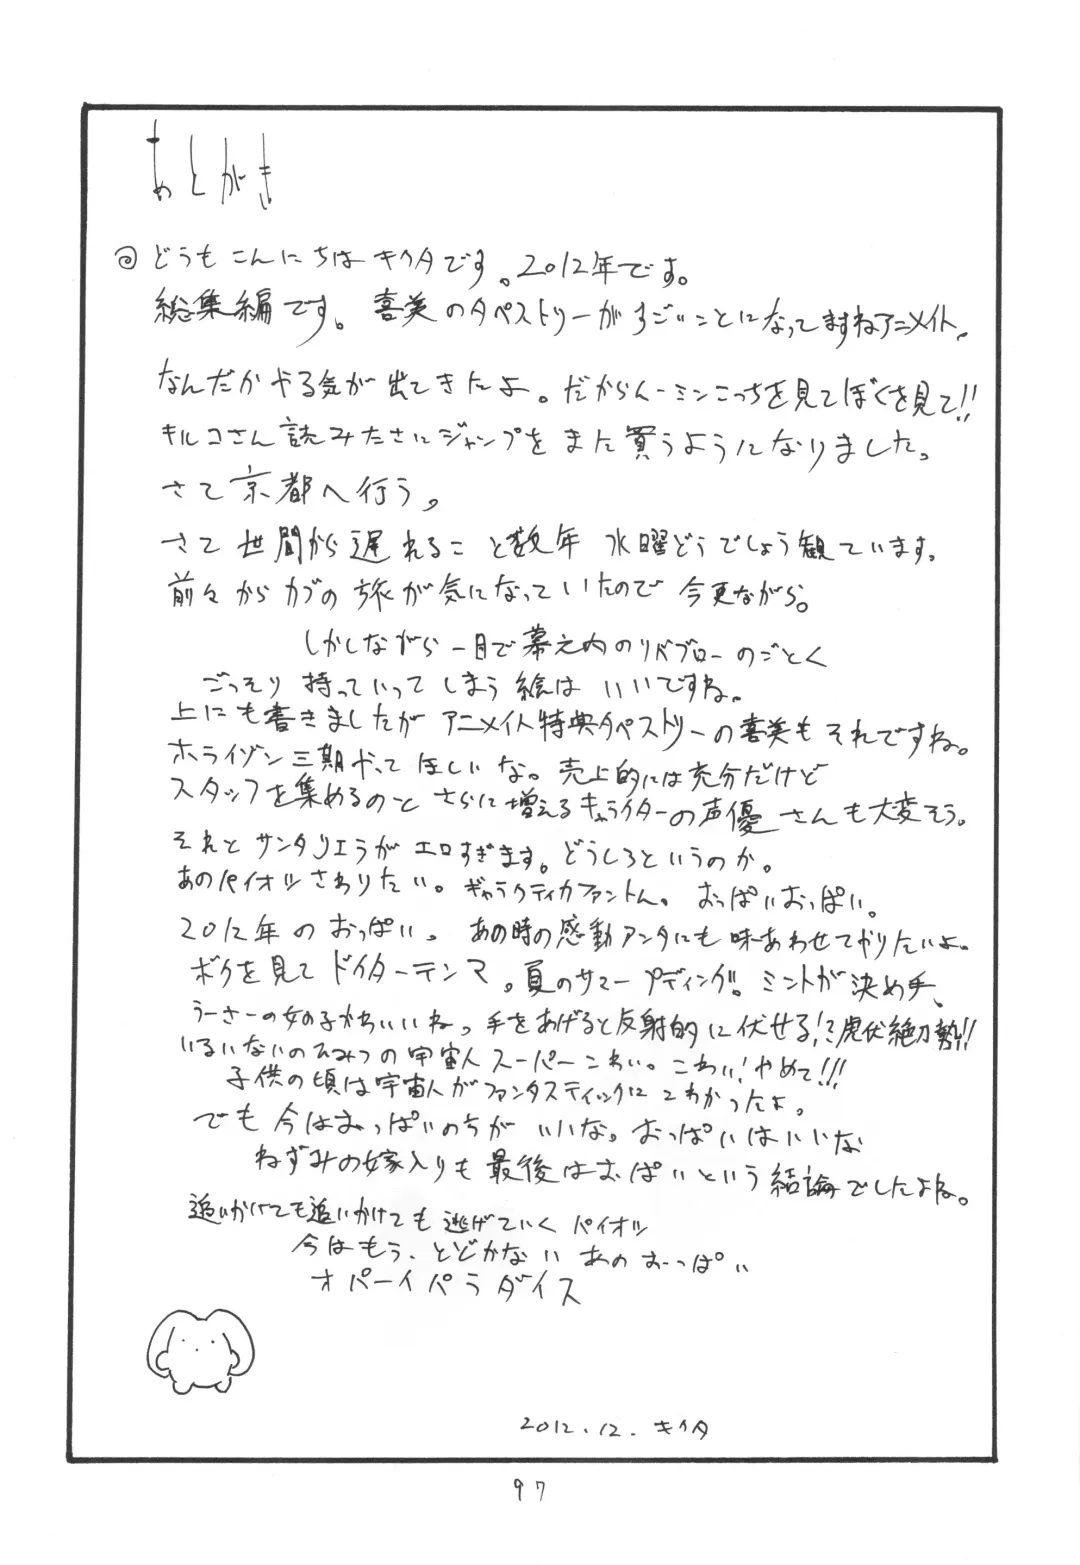 あとがき
どうもこんにちはキクタです。2012年です。
総集編です。喜美のタペストリーがすごいことになってますねアニメイト。
なんだかやる気が出てきたよ。だからムーミンこっちを見てぼくを見て!!
キルコさん読みたさにジャンプをまた買うようになりました。
さて京都へ行う。
さて世間から遅れること数年 水曜どうでしょう観ています。
前々からカブの旅が気になっていたので 今更ながら。
しかしながら一目で幕之内のリバブローのごとく
ごっそり持っていってしまう絵はいいですね。
上にも書きましたがアニメイト特典タペストリーの喜美もそれですね。
ホライゾン三期やってほしいな。売上的には充分だけど
スタッフを集めるのとさらに増えるキャラクターの声優さんも大変そう。
それとサンタリエラがエロすぎます。どうしろというのか。
あのパイオツさわりたい。ギャラクティカファントム。おっぱいおっぱい。
2012年のおっぱい。あの時の感動アンタにも味あわせてやりたいよ。
ボクを見てドイターテンマ。夏のサマープディング!!ミントが決め手。
うーさーの女の子かわいいね。手をあげると反射的に伏せる!?虎伏絶刀勢!!
いるいないのひみつの宇宙人スーパーこわい。こわい!やめて!!!
子供の頃は宇宙人がファンタスティックにこわかったよ。
でも今はおっぱいのちがいいな。おっぱいはいいな
ねずみの嫁入りも最後はおっぱいという結論でしたよね。
追いかけても追いかけても逃げていくパイオツ
今はもう、とどかない あのおーっぱい
オパーイパラダイス
2012.12.キクタ
97